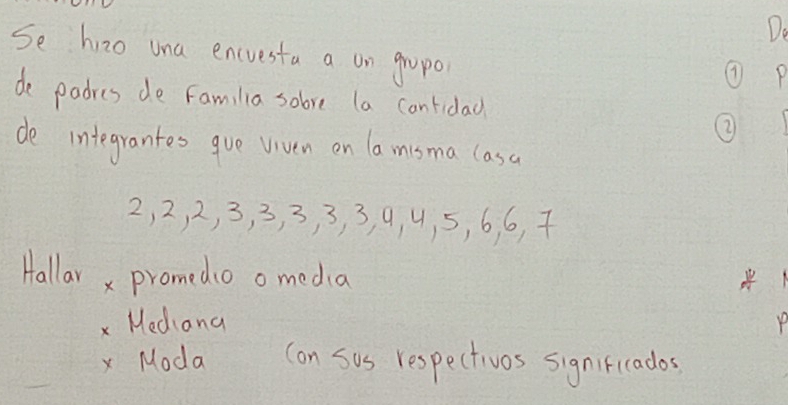 Se hizo una encuesta a un grupo
de padres de Familia sobre la Cantidad
de integrantes que viven en la misma casa
2, 2, 2, 3, 3, 3, 3, 3, 4, 4, 5, 6, 6, 7
Hallar x promedio o media
x Mediana
x Moda Con sus respectivos significados.
De
① P
②
*
P